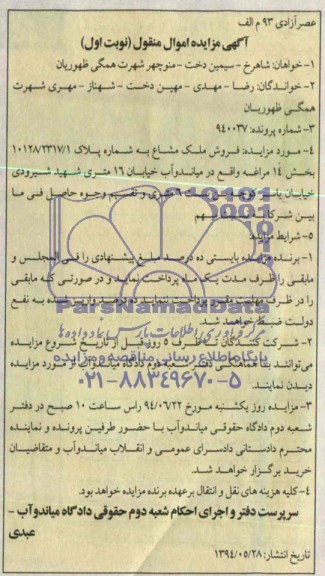 عصر آزادی ۹۳ م الف
آگهی مزایده اموال منقول (نوبت اول)
۱- خواهان: شاهرخ - سیمین دخت - منوچهر شهرت همگی ظهوریان
۲- خواندگان: رضا - مهدی - مهین دخت - شهناز - مهری شهرت
همگی ظهوریان
۳- شماره پرونده: ۹۴۰۰۳۷
۴- مورد مزایده: فروش ملک مشاع به شماره پلاک ۱۰۱۲۸/۲۳۱۷/۱
بخش ۱۴ مراغه واقع در میاندوآب خیابان ۱۶ متری شهید شیرودی
خیابان متری و تقسیم وجوه حاصل فی ما
بین
۵- شرایط مزایده:
۱- برنده مزایده بایستی ده درصد مبلغ پیشنهادی را فی المجلس و
مابقی را ظرف مدت یک ماه پرداخت نماید و در صورتی که مابقی
را در ظرف مهلت مقرر پرداخت ننماید ده درصد واریز شده به نفع
دولت ضبط خواهد شد.
۲- شرکت کنندگان تا ظرف ۵ روز قبل از تاریخ شروع مزایده
می‌توانند با هماهنگی دفتر شعبه دوم دادگاه میاندوآب از مورد مزایده
دیدن نمایند.
۳- مزایده روز یکشنبه مورخ ۹۴/۰۶/۲۲ راس ساعت ۱۰ صبح در دفتر
شعبه دوم دادگاه حقوقی میاندوآب با حضور طرفین پرونده و نماینده
محترم دادستانی دادسرای عمومی و انقلاب میاندوآب و متقاضیان
خرید برگزار خواهد شد.
۴- کلیه هزینه های نقل و انتقال برعهده برنده مزایده خواهد بود.
سرپرست دفتر و اجرای احکام شعبه دوم حقوقی دادگاه میاندوآب -
عبدی
تاریخ انتشار: ۱۳۹۴/۰۵/۲۸
ParsNamadData
مرکز فرآوری اطلاعات پارس نماد داده ها
پایگاه اطلاع رسانی مناقصه و مزایده
۰۲۱-۸۸۳۴۹۶۷۰-۵